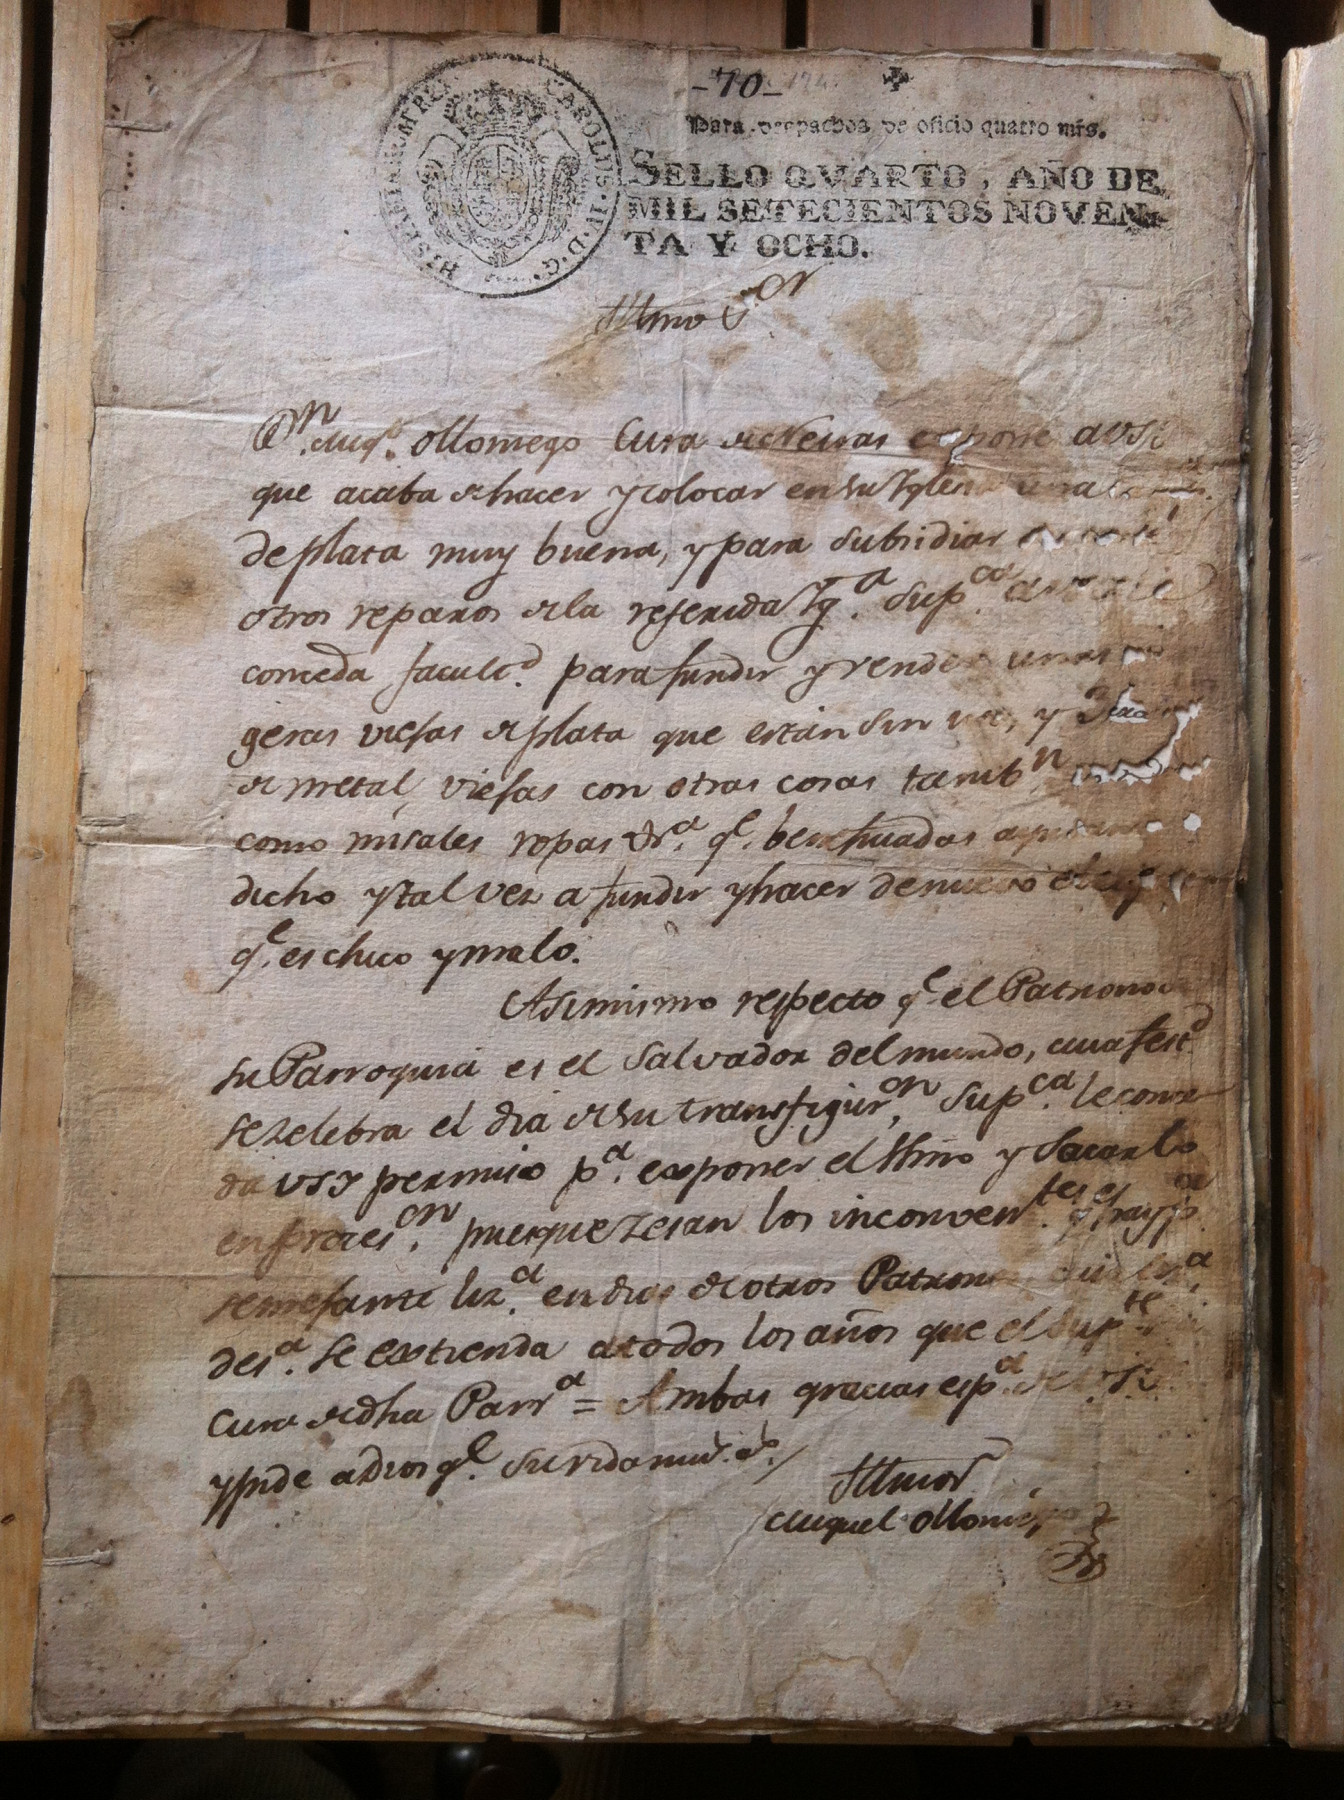 -70-
HISPANIARUM REX CAROLUS·IV·D·G·
Para despachos de oficio quatro mrs.
SELLO QVARTO, AÑO DE
MIL SETECIENTOS NOVEN-
TA Y OCHO.
Yllmo Sor
Dn. Migl. Ollomego Cura de Neiras expone a VSI
que acaba de hacer y colocar en su Yglesia una
de plata muy buena, y para subsidiar
otros reparos de la referida Yga. Supca. a
conceda facultd. para fundir y vender unas
geras viejas de plata que están sin uso, y
de metal, viejas con otras cosas tambn.
como misales ropas &ra. qe.
dicho y tal vez a fundir y hacer de nuevo el
qe. es chico y malo.
Asimismo respecto qe. el Patrono de
su Parroquia es el Salvador del mundo, cuia festd.
se zelebra el dia de su transfiguron. Supca. le conze
da VSY permiso pa. exponer el Ssmo y sacarlo
en proceson. puesque zesan los inconventes. qe. hay pa.
semejante liza. en dias de otros Patronos
desa. se extienda a todos los años que el Supte.
Cura de dha Parra = Ambas gracias espa. de VSI
y pide a Dios ge. su vida ms. as.
Yllmo Sor
Miguel Ollomego